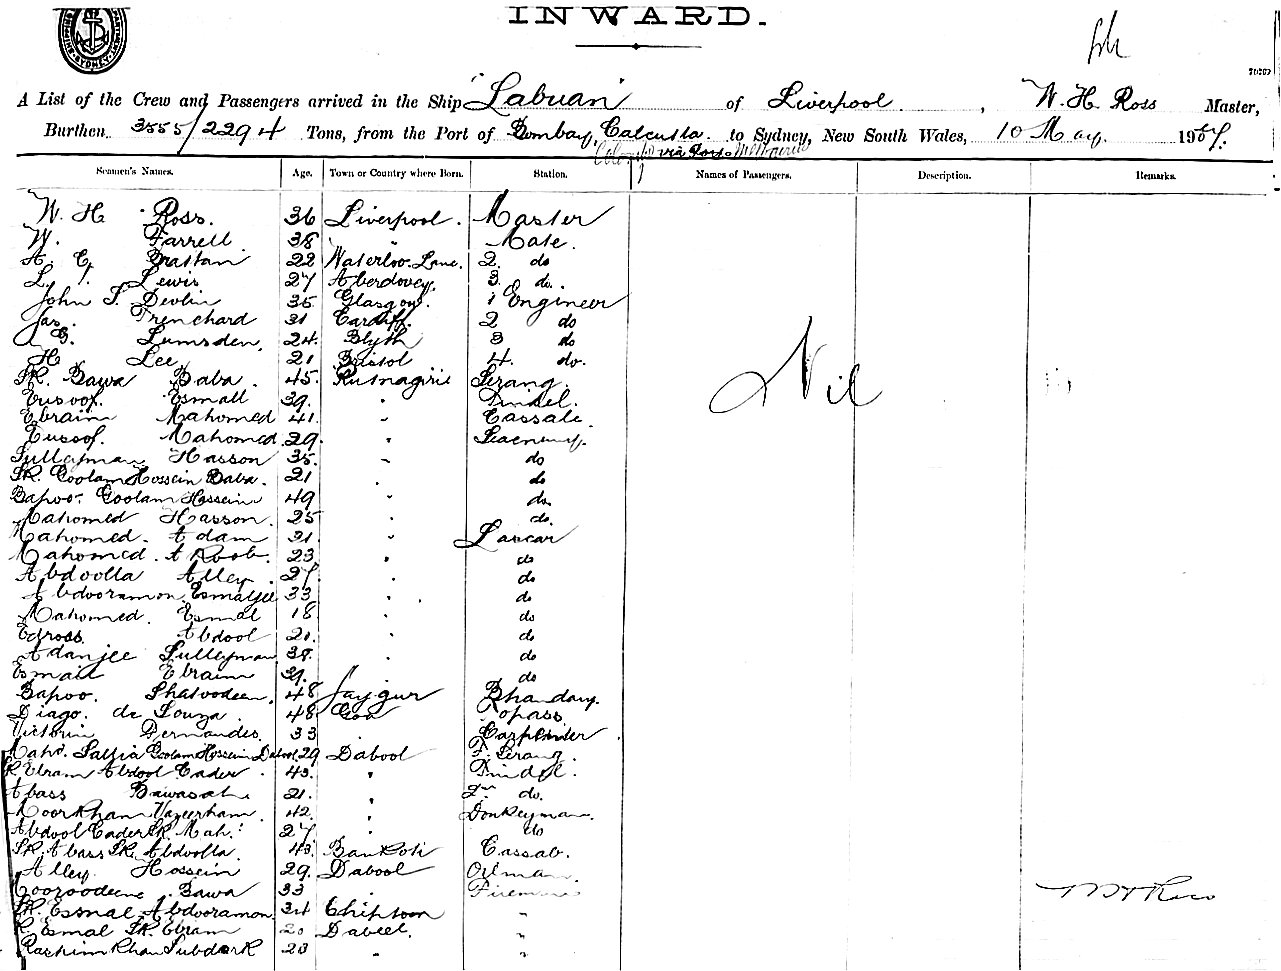 INWARD.
SYDNEY
A List of the Crew and Passengers arrived in the Ship "Labuan" of Liverpool, W. H. Ross Master,
Burthen 3555/2294 Tons, from the Port of Bombay, Calcutta to Sydney, New South Wales, 10 May 1907.
Colombo via Ports Melbourne
Seamen's Names. Age. Town or Country where Born. Station. Names of Passengers. Description. Remarks.
W. H. Ross. 36 Liverpool. Master
W. Farrell 38 " Mate.
A. C. Brattan 22 Waterloo. Lanc. 2. do
L. I. Lewis 27 Aberdovey. 3. do.
John S. Devlin 35. Glasgow. 1 Engineer
Jas. Trenchard 31 Cardiff. 2 do
G. Lumsden. 24. Blyth 3 do
H Lee 21 Bristol 4. do.
SK. Bawa Baba. 45. Rutnagiri Serang.
Eusoof. Esmall 39. " Tindel.
Ebraim Mahomed 41. " Cassab.
Eussof. Mahomed 29. "
Sulleyman Hasson 35. " do
SK. Goolam Hossein Baba. 21 " do
Bapoo. Goolam Hossein 49 " do.
Mahomed Hasson. 25 " do.
Mahomed. Adam 21 " Lascar
Mahomed. A Roob. 23 " do
Abdoolla Alley. 27. " do
Abdooramon Esmaljee 33 " do
Mahomed. Esmal 18 " do
Edross Abdool 21. " do
Adamjee Sulleyman 38. " do
Esmail Ebraim 39. " do
Bapoo. Shaivodeen. 48 Jaygur Bhandary.
Diago. de Souza. 48 Goa Topass.
Victorin Fernandes. 33 " Carpenter.
Mahd. Saffia Goolam Hossein Dabool. 29 Dabool F. Serang.
Ebram Abdool Cader. 43. " Tindel.
Abass Bawasah 21. " 2nd do.
Noorkhan Vazeerham. 42. " Donkeyman.
Abdool Cader SK. Mah. 27 " do
SK. Abass SK. Abdoolla. 43. Bankoti Cassab.
Alley. Hossein 29. Dabool Oilman.
Cooroodeene Bawa 33 " Fireman
SK. Esmal Abdooramon. 34 Chiploon "
Esmal SK. Ebram 20 Dabeel. "
Rachim Khan Subdark 23 " "
Nil
W H Ross